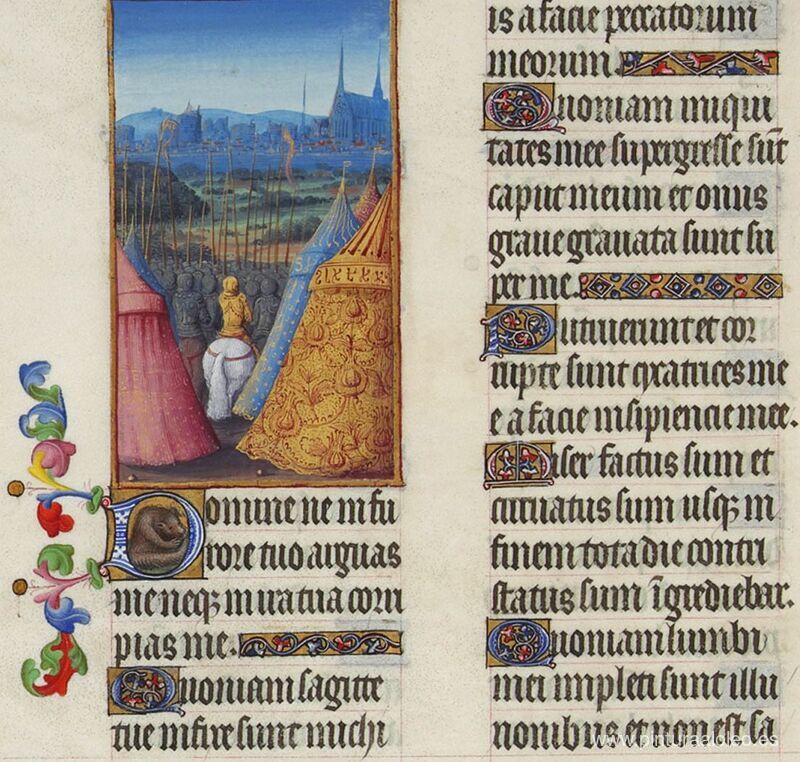 Domine ne in fu
rore tuo arguas
me neqꝫ in ira tua corri
pias me.
Quoniam sagitte
tue infixe sunt michi
is a facie peccatorum
meorum.
Quoniam iniqui
tates mee supergresse sūt
caput meum et onus
graue grauata sunt su
per me.
Putruerunt et cor
rupte sunt cicatrices me
e a facie insipiencie mee.
Miser factus sum et
curuatus sum usqꝫ in
finem tota die contri
status sum īgrediebar.
Quoniam lumbi
mei impleti sunt illu
sionibus et non est sa
www.pinturaaloleo.es